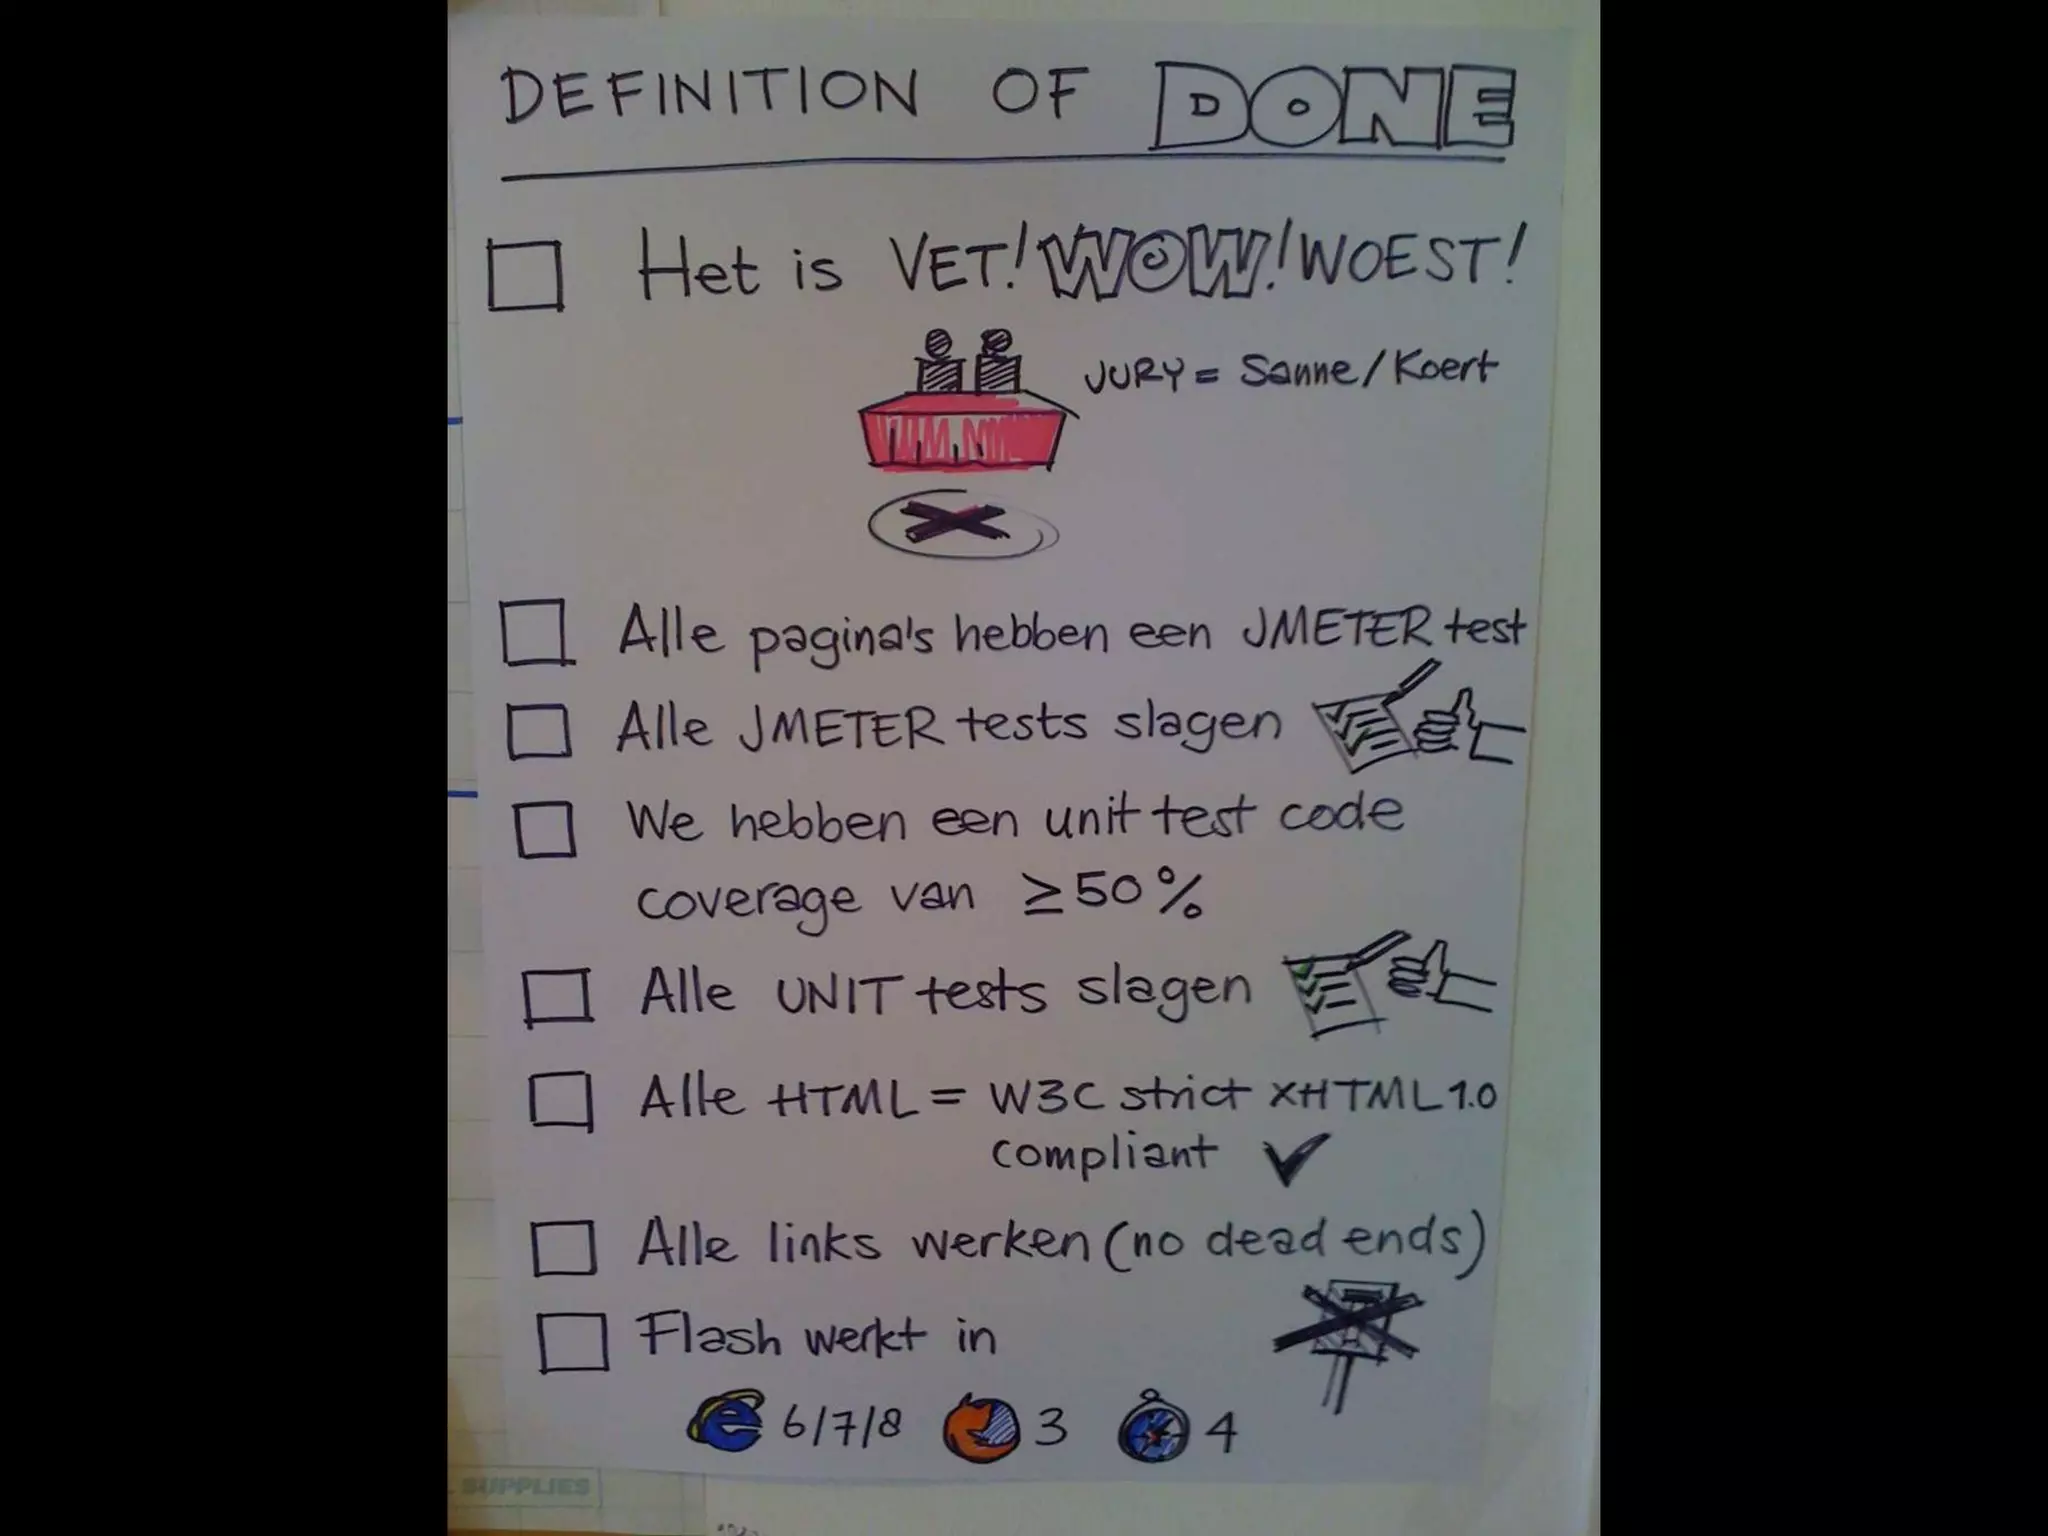 DEFINITION OF DONE
Het is VET! WOW! WOEST!
JURY = Sanne/Koert
Alle pagina's hebben een JMETER test
Alle JMETER tests slagen
We hebben een unit test code
coverage van ≥50%
Alle UNIT tests slagen
Alle HTML = W3C strict XHTML 1.0
compliant
Alle links werken (no dead ends)
Flash werkt in
6/7/8 3 4
SUPPLIES